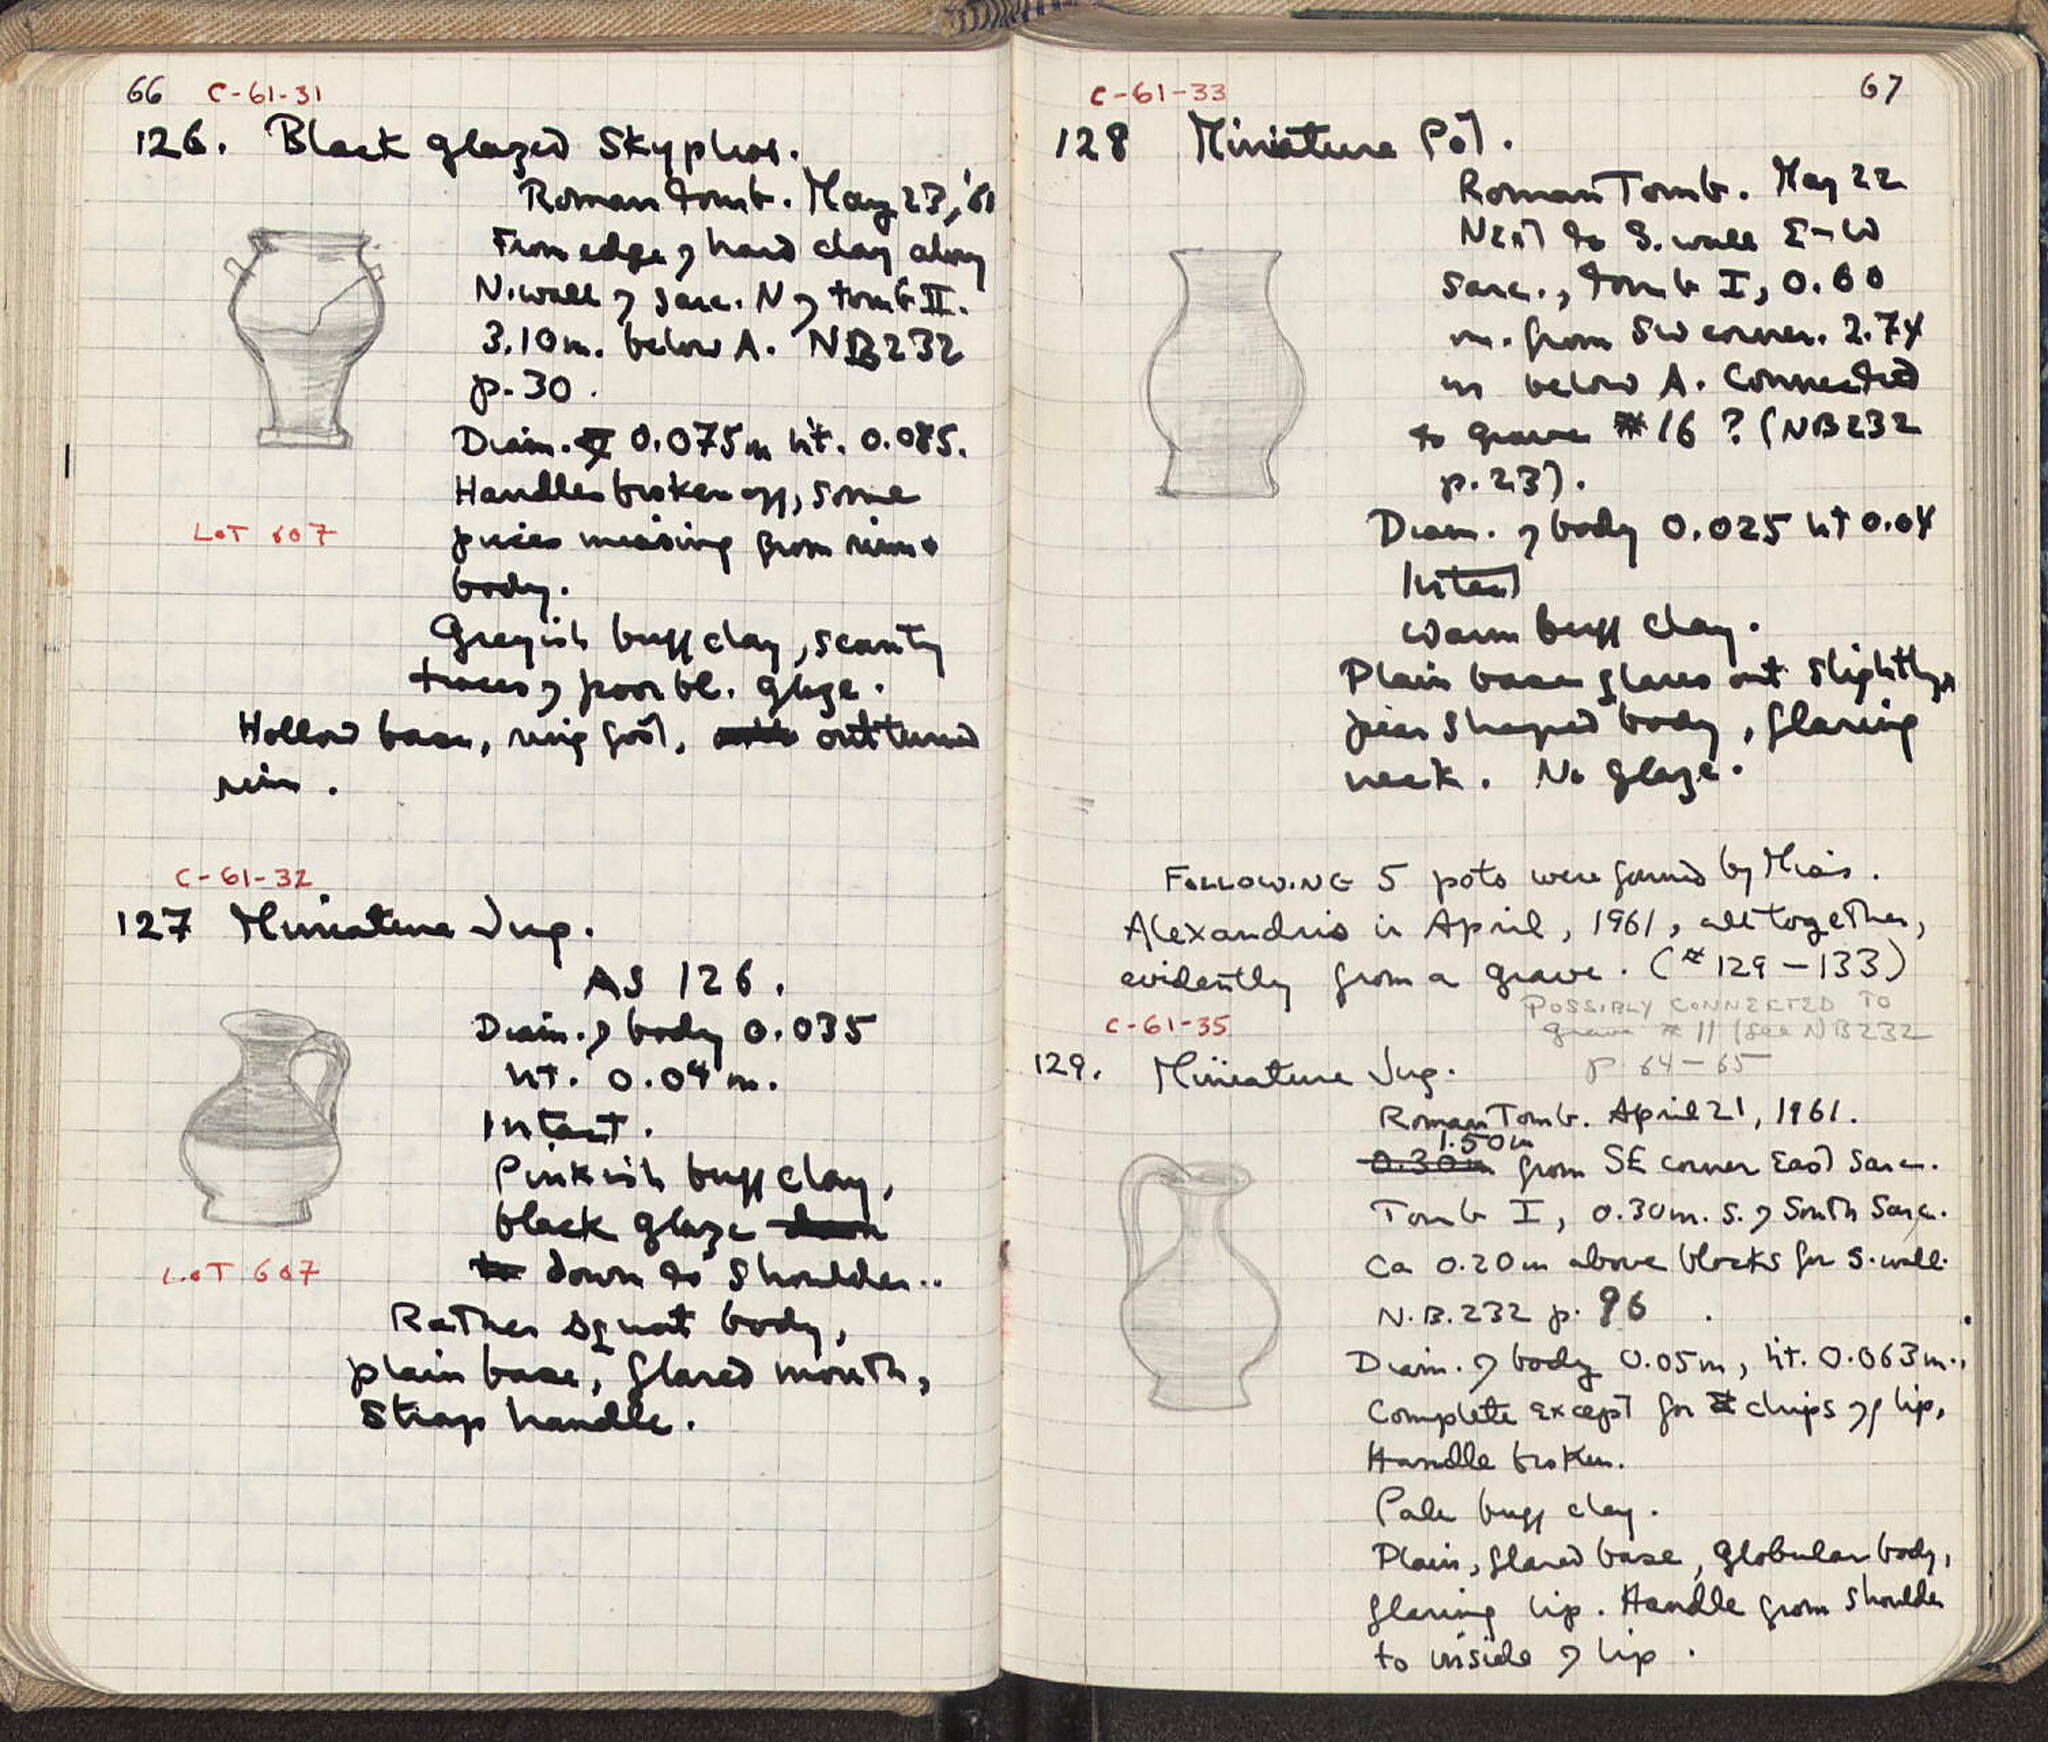 66 C-61-31
126. Black glazed Skyphos.
Roman tomb. May 23, '61
From edge of hard clay along
N. wall of sarc. N of tomb II.
3.10 m. below A. NB 232
p. 30.
Diam. 0.075 m ht. 0.085.
Handles broken off, some
pieces missing from rim +
body.
LOT 607
Greyish buff clay, scanty
traces of poor bl. glaze.
Hollow base, ring foot, outturned
rim.
C-61-32
127 Miniature Jug.
AS 126.
Diam. of body 0.035
ht. 0.04 m.
Intact.
Pinkish buff clay,
black glaze down
to down to shoulder..
LOT 607
Rather squat body,
plain base, flared mouth,
strap handle.
C-61-33 67
128 Miniature Pot.
Roman Tomb. May 22
Next to S. wall E-W
sarc., tomb I, 0.60
m. from SW corner. 2.74
m below A. Connected
to grave #16? (NB 232
p. 23).
Diam. of body 0.025 ht 0.04
Intact
Warm buff clay.
Plain base flares out slightly,
pear shaped body, flaring
neck. No glaze.
FOLLOWING 5 pots were found by
Alexandris in April, 1961, all together,
evidently from a grave. (# 129-133)
POSSIBLY CONNECTED TO
grave # 11 (see NB 232
p. 64-65
C-61-35
129. Miniature Jug.
Roman Tomb. April 21, 1961.
1.50m
0.30m from SE corner East Sarc.
Tomb I, 0.30m. S. of South Sarc.
Ca 0.20m above blocks for S. wall.
N.B. 232 p. 96
Diam. of body 0.05m, ht. 0.063m.,
Complete except for chips of lip,
Handle broken.
Pale buff clay.
Plain, flared base, globular body,
flaring lip. Handle from shoulder
to inside of lip.